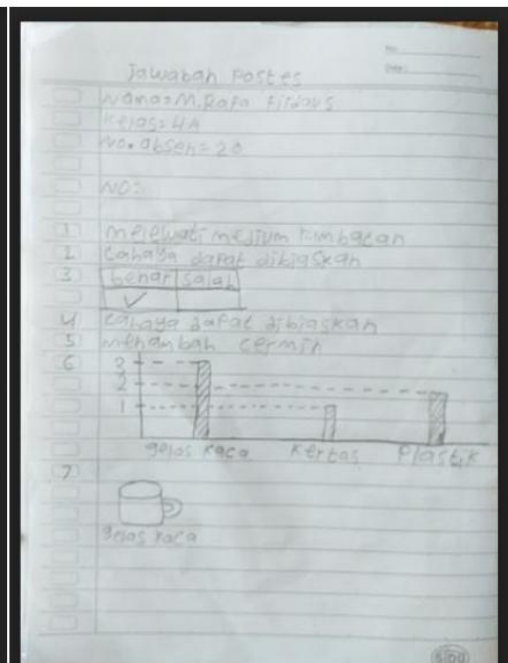 No:
Date:
Jawaban Postes
Nama= M. Rafa Firdaus
Kelas= 4A
No. absen= 20
NO=
1 melewati medium rambatan
2 Cahaya dapat dibiaskan
3 benar salah
✓
4 Cahaya dapat dibiaskan
5 menambah cermin
6 3
2
1
gelas kaca kertas Plastik
7
gelas kaca
SIDU